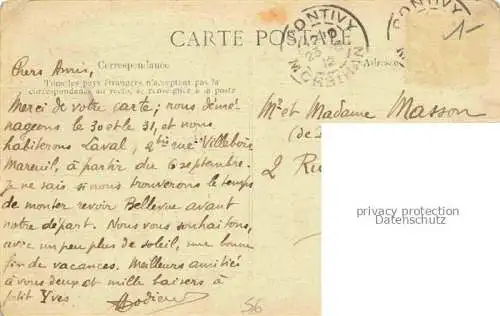 CARTE POSTALE
PONTIVY
MORBIHAN
Correspondance
Adresse
Tous les pays étrangers n'acceptent pas la
correspondance au recto, se renseigner à la poste
Chers Amis,
Merci de votre carte; nous démé-
nageons le 30 et le 31, et nous
habiterons Laval, rue Villebois
Mareuil, à partir du 6 septembre.
Je ne sais si nous trouverons le temps
de monter revoir Bellevue avant
notre départ. Nous vous souhaitons,
avec un peu plus de soleil, une bonne
fin de vacances. Meilleurs amitiés
à vous deux et mille baisers à
petit Yves.
Mr et Madame Masson
(de
2 Ru
privacy protection
Datenschutz
56
1-